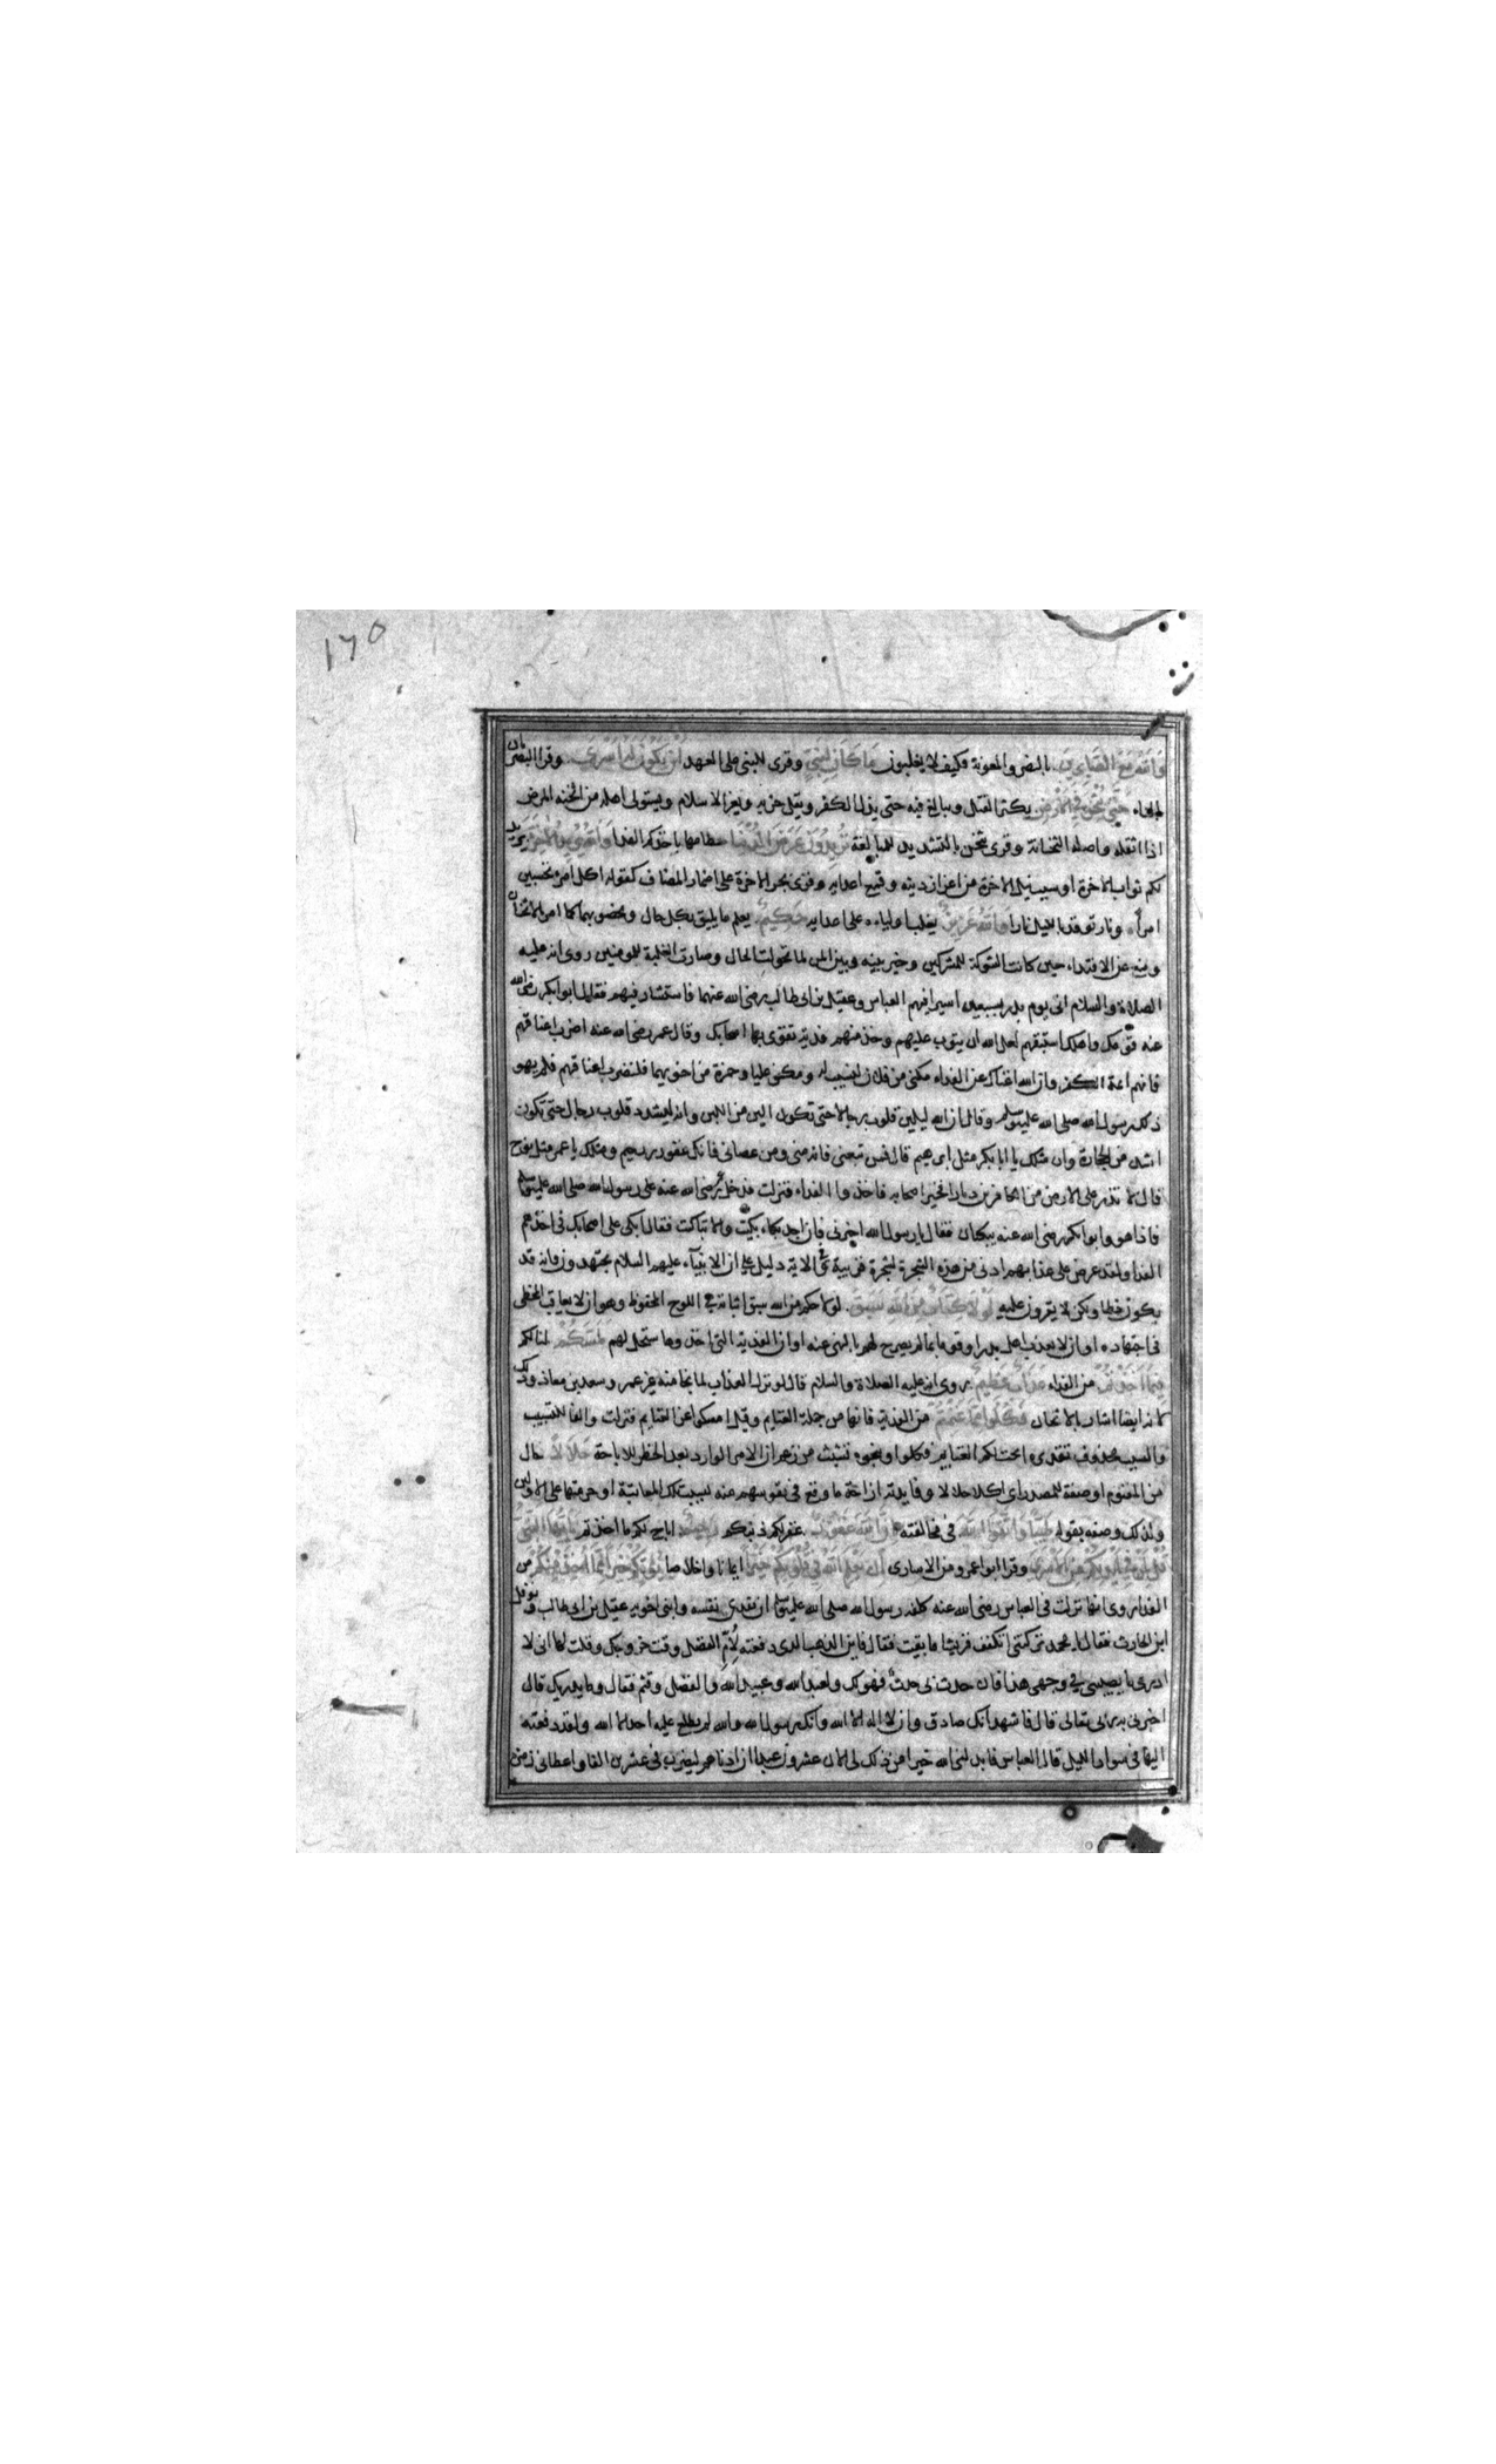 ١٧٥
والله مع الصابرين بالنصر والمعونة فكيف لا يغلبون ما كان لنبي وقرئ للنبي على العهد ان يكون له اسرى وقرا البصريان
بالتاء حتى يثخن في الارض يكثر القتل ويبالغ فيه حتى يذل الكفر ويقل حزبه ويعز الاسلام ويستولي اهله من اثخنه المرض
اذا اثقله واصله الثخانة وقرى يثخن بالتشديد للمبالغة تريدون عرض الدنيا حطامها باخذكم الفدا والله يريد الاخرة يريد
لكم ثواب الاخرة او سبب نيل الاخرة من اعزاز دينه وقمع اعدايه وقرى بجر الاخرة على اضمار المضاف كقوله اكل امرء تحسبين
امرأ ونار توقد بالليل نارا والله عزيز يغلب اولياءه على اعدايه حكيم يعلم ما يليق بكل حال ويخصه بها كما امر بالاثخان
ومنع عن الافتداء حين كانت الشوكة للمشركين وخير بينه وبين المن لما تحولت الحال وصارت الغلبة للمومنين روى انه عليه
الصلاة والسلام اتى يوم بدر بسبعين اسيرا فيهم العباس وعقيل بن ابى طالب رضى الله عنهما فاستشار فيهم فقال ابو ابكر رضى الله
عنه قومك واهلك استبقهم لعل الله ان يتوب عليهم وخذ منهم فدية تقوى بها اصحابك وقال عمر رضى الله عنه اضرب اعناقهم
فانهم ائمة الكفر وان الله اغناك عن الفداء مكنى من فلان لنسيب له ومكن عليا وحمزة من اخويهما فلنضرب اعناقهم فلم يهو
ذلك رسول الله صلى الله عليه وسلم وقال ان الله ليلين قلوب رجال حتى تكون الين من اللبن وانه ليشدد قلوب رجال حتى تكون
اشد من الحجارة وان مثلك يا ابا بكر مثل ابرهيم قال فمن تبعنى فانه منى ومن عصانى فانك غفور رحيم ومثلك يا عمر مثل نوح
قال لا تذر على الارض من الكافرين ديارا فخير اصحابه فاخذوا الفداء فنزلت فدخل عمر رضى الله عنه على رسول الله صلى الله عليه وسلم
فاذا هو وابو ابكر رضى الله عنه يبكيان فقال يا رسول الله اخبرنى فان اجد بكاء بكيت والا تباكيت فقال ابكى على اصحابك فى اخذهم
الفدا ولقد عرض على عذابهم ادنى من هذه الشجرة لشجرة قريبة والاية دليل على ان الانبيآء عليهم السلام يجتهدون وانه قد
يكون خطا ولكن لا يقرون عليه لولا كتاب من الله سبق لولا حكم من الله سبق اثباته فى اللوح المحفوظ وهو ان لا يعاقب المخطى
فى اجتهاده او ان لا يعذب اهل بدر او قوما بما لم يصرح لهم بالنهى عنه او ان الفدية التى اخذوها ستحل لهم لمسكم لنالكم
فيما اخذتم من الفداء عذاب عظيم روى انه عليه الصلاة والسلام قال لو نزل العذاب لما نجا منه غير عمر وسعد بن معاذ وذلك
لانه ايضا اشار بالاثخان فكلوا مما غنمتم من الفدية فانها من جملة الغنايم وقيل امسكوا عن الغنايم فنزلت والفا للتسبيب
والسبب محذوف تقديره ابحت لكم الغنايم فكلوا وبنحوه تشبث من زعم ان الامر الوارد بعد الحظر للاباحة حلالا حال
من المغنوم او صفة للمصدر اى اكلا حلالا وفايدته ازاحة ما وقع فى نفوسهم عنه بسبب تلك المعاتبة او حرمتها على الاولين
ولذلك وصفه بقوله طيبا واتقوا الله فى مخالفته ان الله غفور غفر لكم ذنبكم رحيم اباح لكم ما اخذتم يا ايها النبى
قل لمن فى ايديكم من الاسرى وقرا ابو عمرو من الاسارى ان يعلم الله فى قلوبكم خيرا ايمانا واخلاصا يؤتكم خيرا مما اخذ منكم من
الفدا روى انها نزلت فى العباس رضى الله عنه كلفه رسول الله صلى الله عليه وسلم ان يفدى نفسه وابنى اخويه عقيل بن ابى طالب ونوفل
ابن الحارث فقال يا محمد تركتنى اتكفف قريشا ما بقيت فقال فاين الذهب الذى دفعته لأم الفضل وقت خروجك وقلت لها انى لا
ادرى ما يصيبنى فى وجهى هذا فان حدث بى حدث فهو لك ولعبد الله وعبيد الله والفضل وقثم فقال وما يدريك قال
اخبرنى به ربى تعالى قال فاشهد انك صادق وان لا اله الا الله وانك رسول الله والله لم يطلع عليه احد الا الله ولقد دفعته
اليها فى سواد الليل قال العباس فابدلنى الله خيرا من ذلك لى الان عشرون عبدا ان ادناهم ليضرب فى عشرين الفا واعطانى زمزم